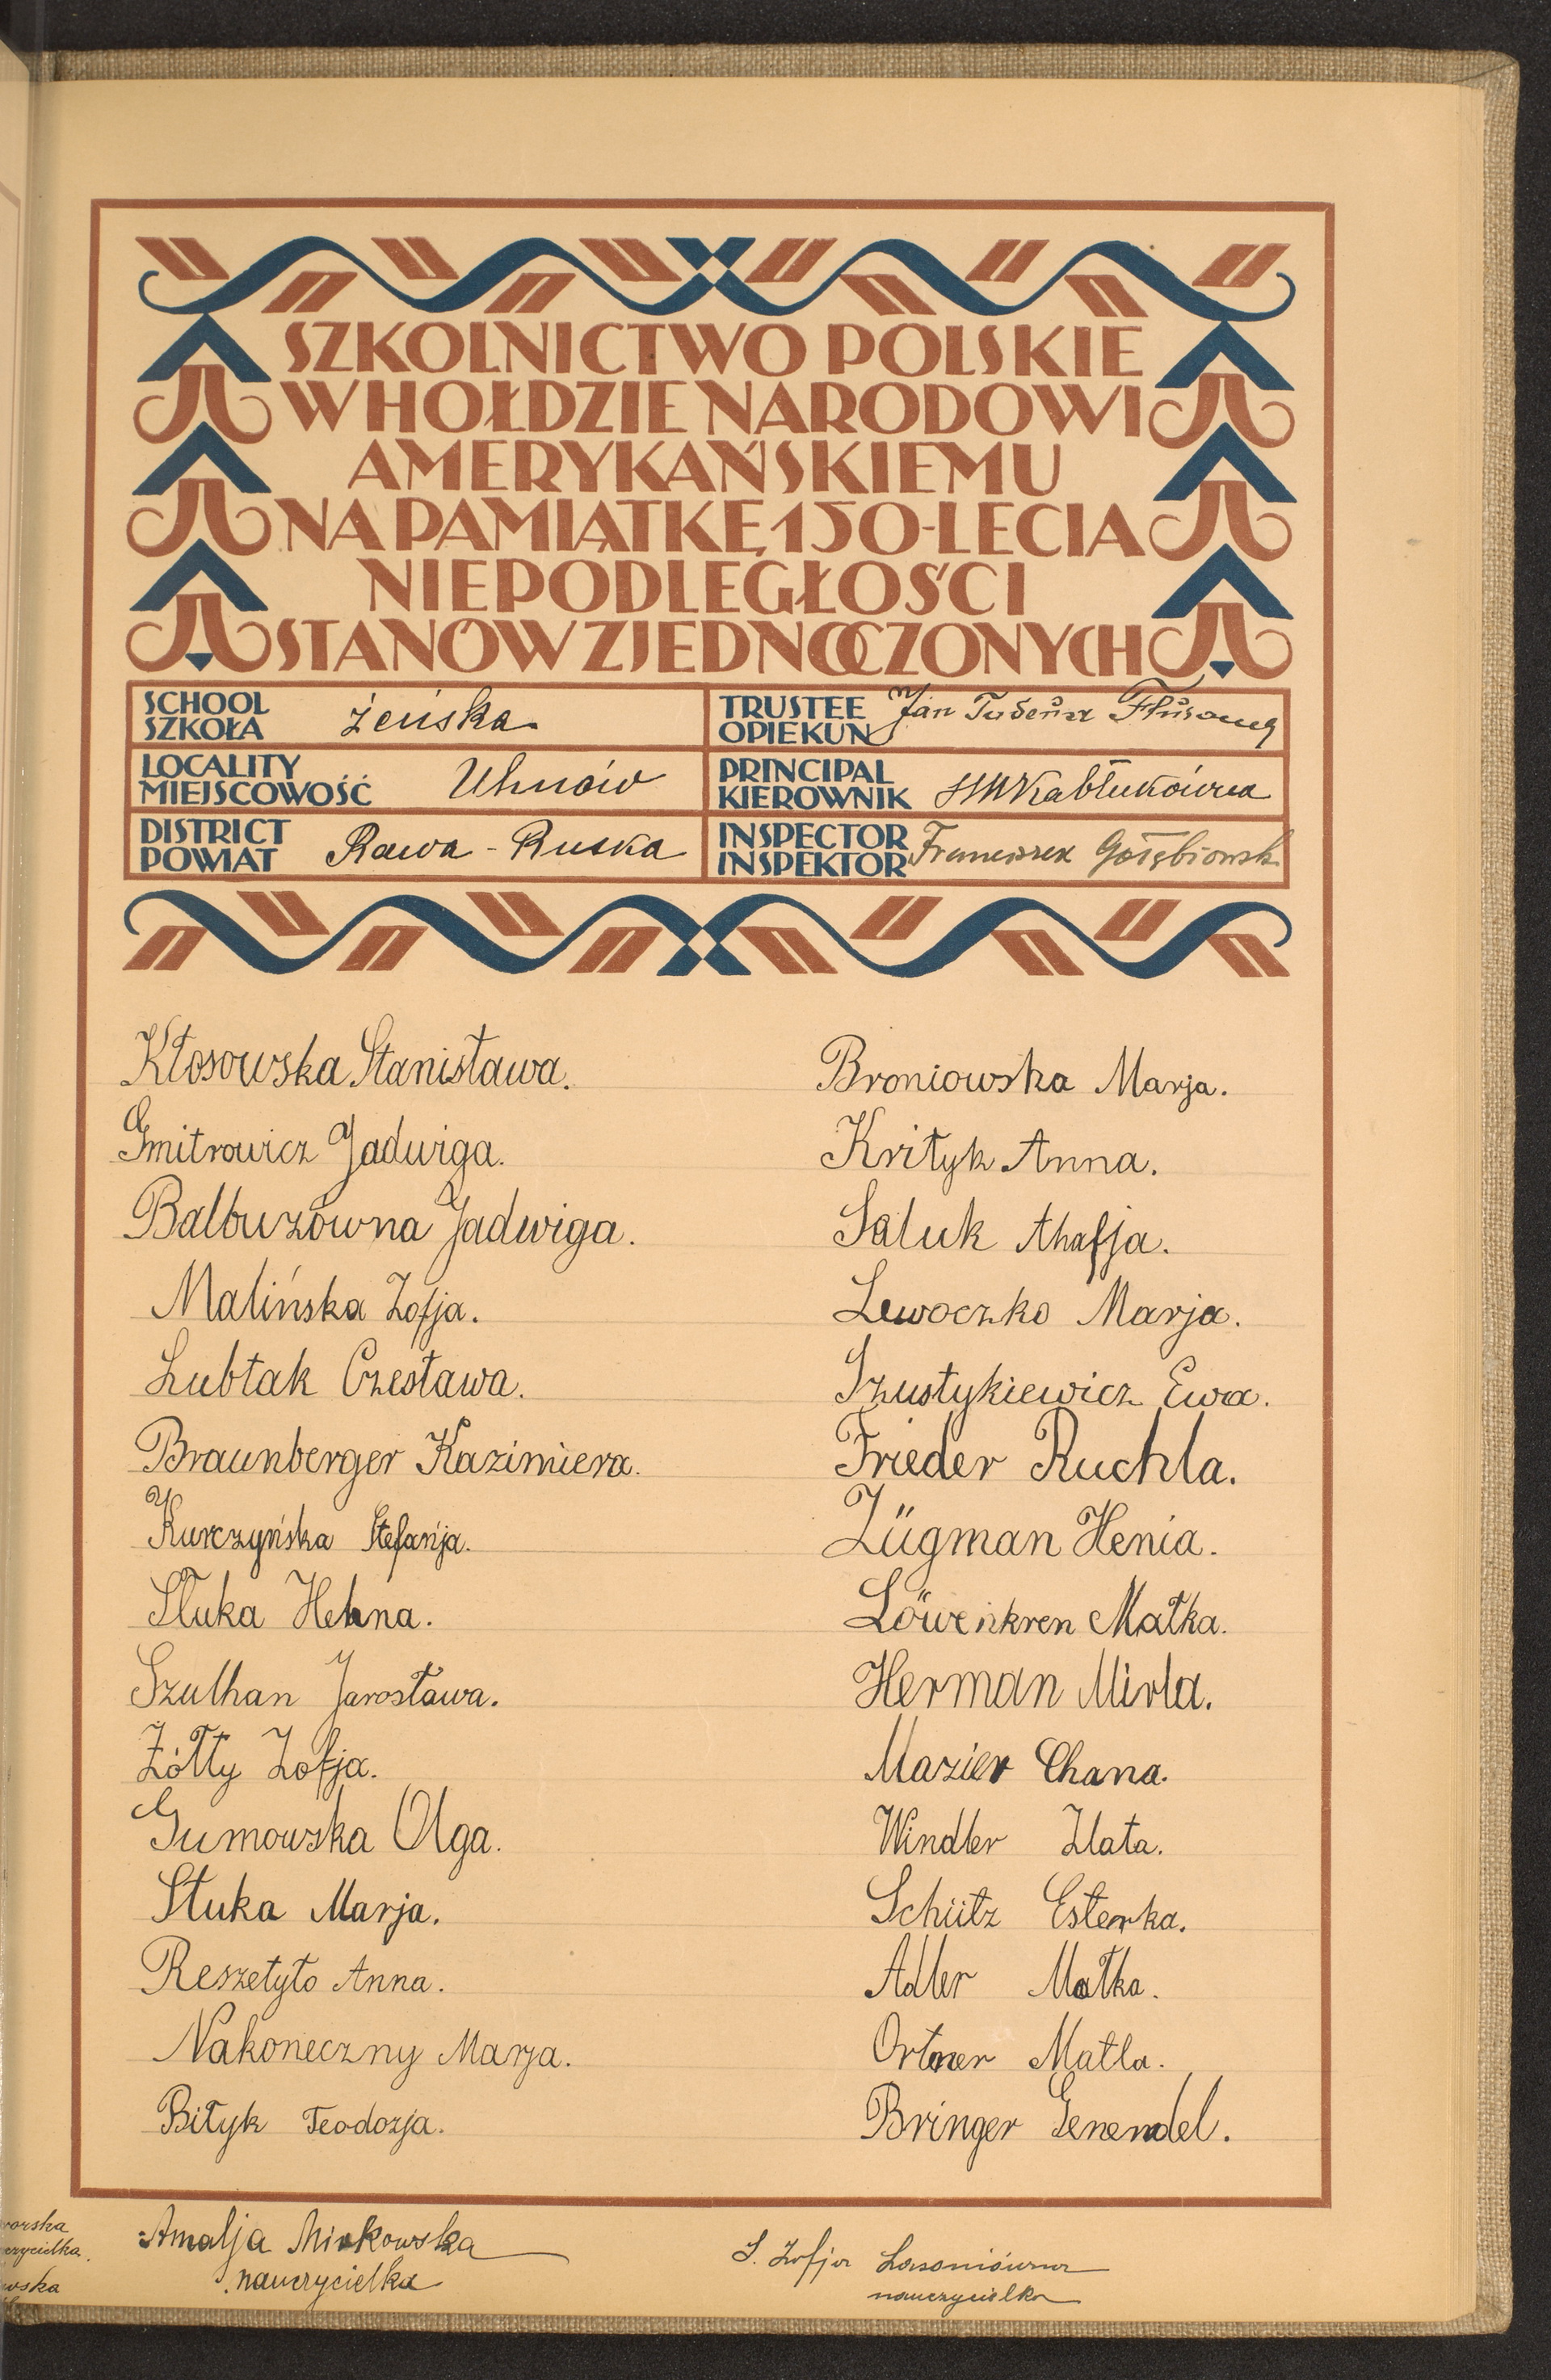 SZKOLNICTWO POLSKIE
W HOŁDZIE NARODOWI
AMERYKAŃSKIEMU
NA PAMIĄTKĘ 150-LECIA
NIEPODLEGŁOŚCI
STANÓW ZJEDNOCZONYCH
SCHOOL
SZKOŁA
żeńska
TRUSTEE
OPIEKUN
Jan
LOCALITY
MIEJSCOWOŚĆ
Uhnów
PRINCIPAL
KIEROWNIK
Kabłukówna
DISTRICT
POWIAT
Rawa-Ruska
INSPECTOR
INSPEKTOR
Franciszek Gołębiowsk
Kłosowska Stanisława.
Gmitrowicz Jadwiga.
Balbuzówna Jadwiga.
Malińska Zofja.
Lubłak Czesława.
Braunberger Kazimiera.
Kurczyńska Stefańja.
Słuka Helena.
Szulhan Jarosława.
Żółty Zofja.
Gumowska Olga.
Słuka Marja.
Reszetyło Anna.
Nakoneczny Marja.
Biłyk Teodozja.
Broniowska Marja.
Kriłyk Anna.
Saluk Ahafja.
Lewoczko Marja.
Szustykiewicz Ewa.
Frieder Ruchla.
Zügman Henia.
Löwenkren Małka.
Herman Mirla.
Mazier Chana.
Windler Zlata.
Schütz Esterka.
Adler Małka.
Ortner Matla.
Bringer Genendel.
Amalja Mirkowska
nauczycielka
S. Zofja Lasoniówna
nauczycielka